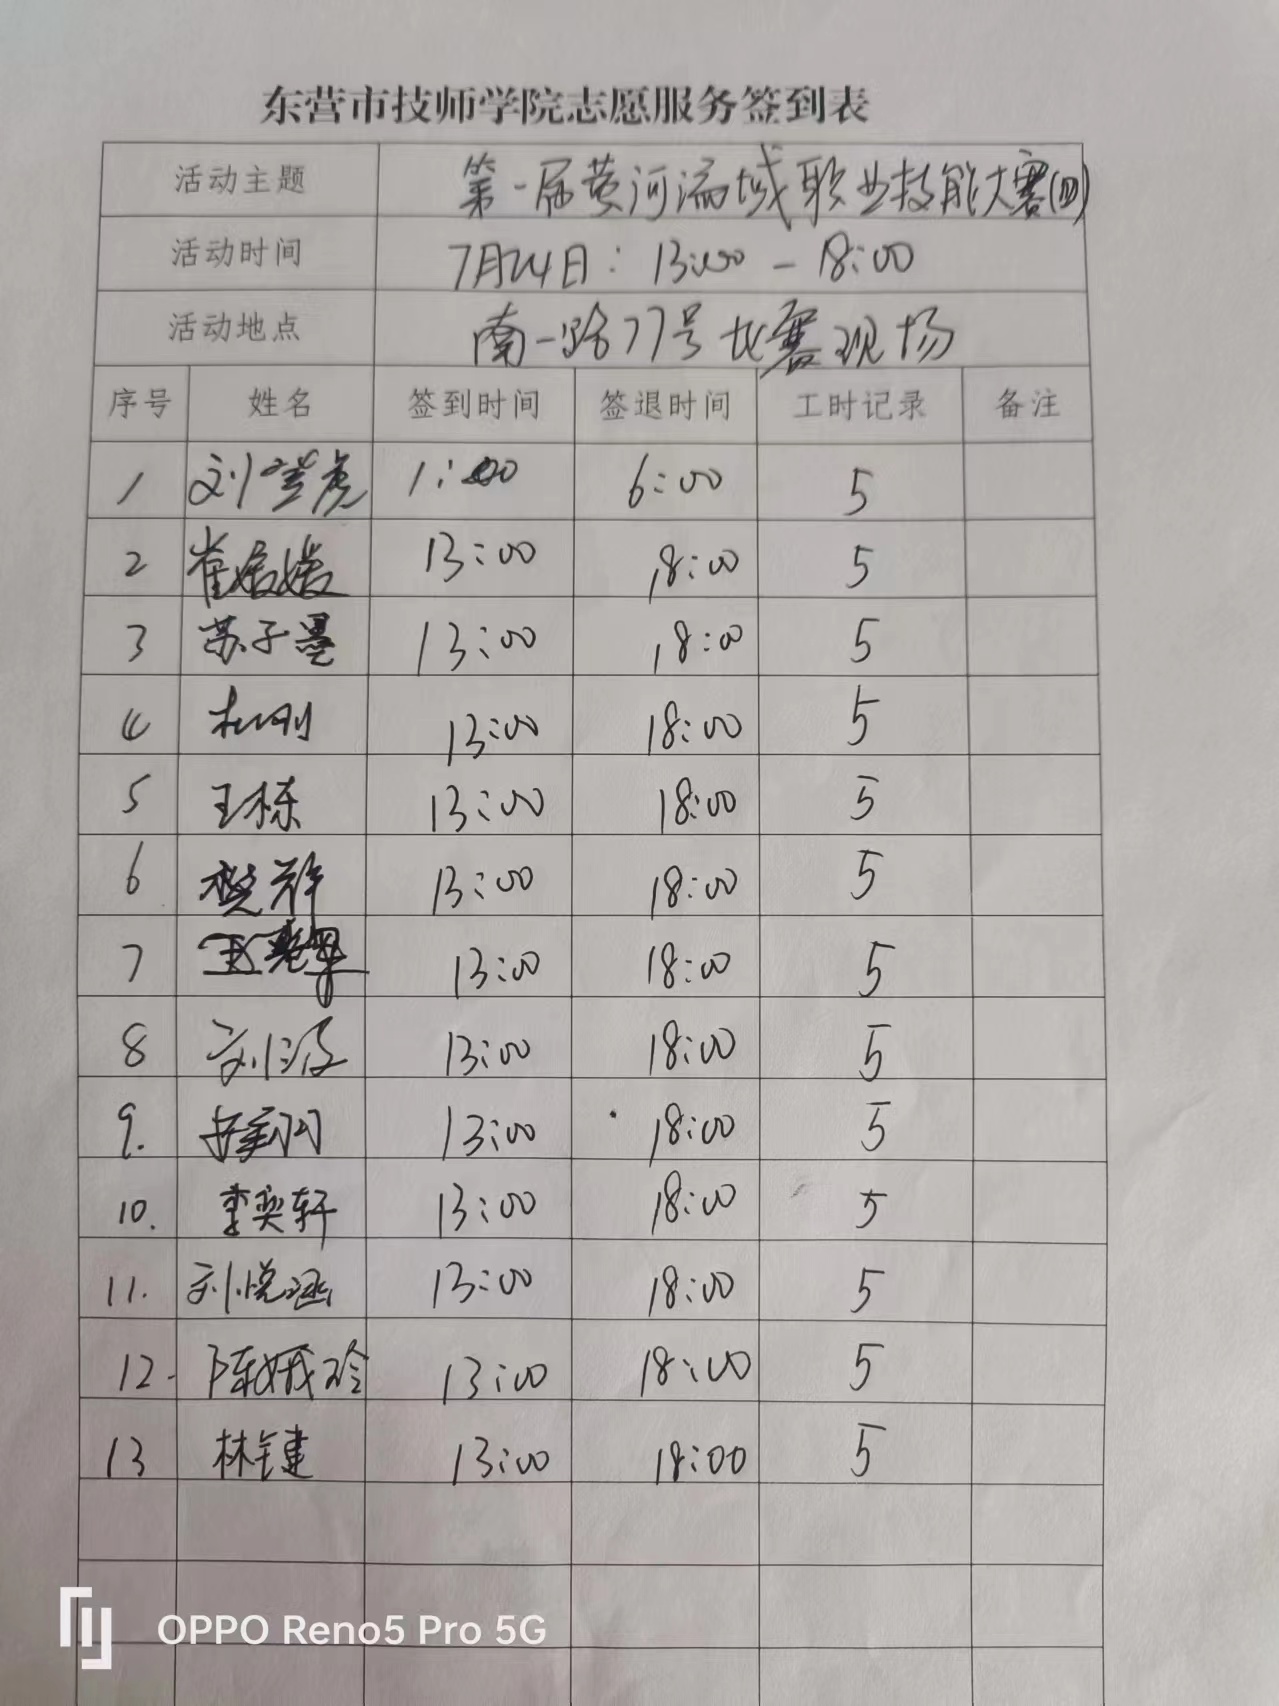 东营市技师学院志愿服务签到表
活动主题 第一届黄河流域职业技能大赛(四)
活动时间 7月24日: 13:00 - 18:00
活动地点 南一路77号比赛现场
序号 姓名 签到时间 签退时间 工时记录 备注
1 刘 1:00 6:00 5
2 崔媛媛 13:00 18:00 5
3 苏子墨 13:00 18:00 5
4 杜刚 13:00 18:00 5
5 王栋 13:00 18:00 5
6 樊 13:00 18:00 5
7 13:00 18:00 5
8 刘 13:00 18:00 5
9. 13:00 18:00 5
10. 李奕轩 13:00 18:00 5
11. 刘悦涵 13:00 18:00 5
12. 陈娥玲 13:00 18:00 5
13 林键 13:00 18:00 5
OPPO Reno5 Pro 5G